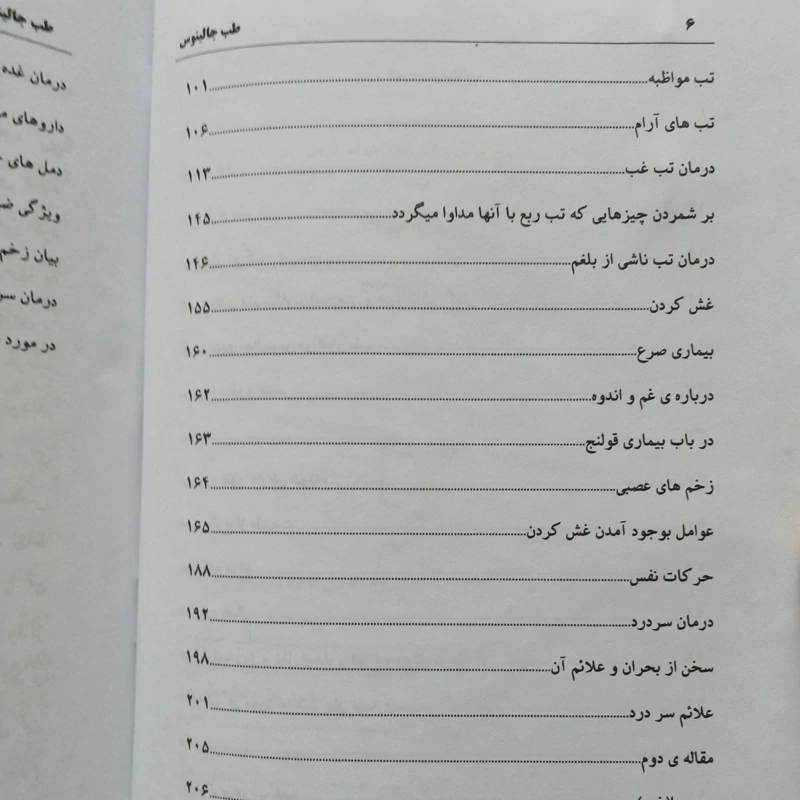 ۶
طب جالینوس
تب مواظبه ۱۰۱
تب های آرام ۱۰۶
درمان تب غب ۱۱۳
بر شمردن چیزهایی که تب ربع با آنها مداوا میگردد ۱۴۵
درمان تب ناشی از بلغم ۱۴۶
غش کردن ۱۵۵
بیماری صرع ۱۶۰
درباره ی غم و اندوه ۱۶۲
در باب بیماری قولنج ۱۶۳
زخم های عصبی ۱۶۴
عوامل بوجود آمدن غش کردن ۱۶۵
حرکات نفس ۱۸۸
درمان سردرد ۱۹۲
سخن از بحران و علائم آن ۱۹۸
علائم سر درد ۲۰۱
مقاله ی دوم ۲۰۵
۲۰۶
طب
درمان غده
داروهای
دمل های
ویژگی
بیان زخم
درمان
در مورد